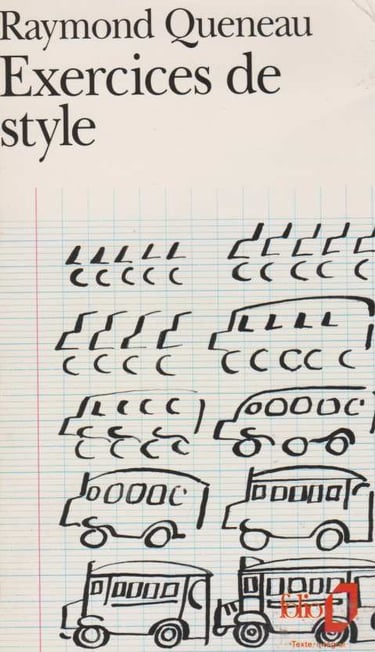 Raymond Queneau
Exercices de
style
folio
Texte intégral